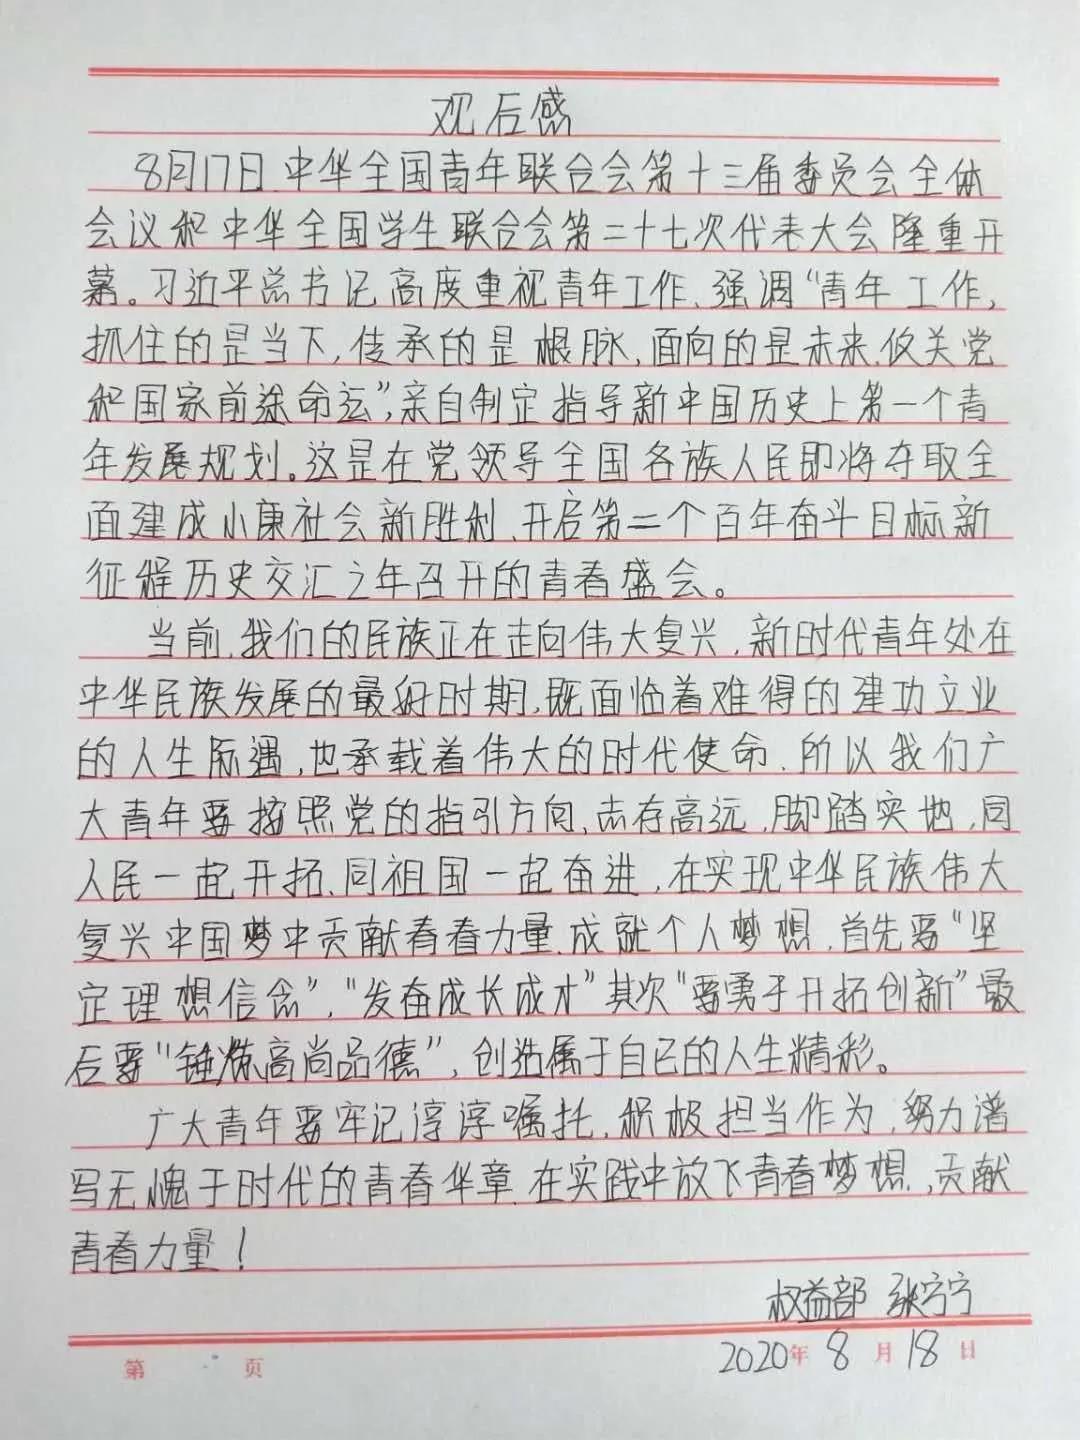 观后感
8月17日,中华全国青年联合会第十三届委员会全体
会议和中华全国学生联合会第二十七次代表大会隆重开
幕。习近平总书记高度重视青年工作,强调“青年工作,
抓住的是当下,传承的是根脉,面向的是未来,攸关党
和国家前途命运”,亲自制定指导新中国历史上第一个青
年发展规划。这是在党领导全国各族人民即将夺取全
面建成小康社会新胜利,开启第二个百年奋斗目标新
征程历史交汇之年召开的青春盛会。
当前,我们的民族正在走向伟大复兴,新时代青年处在
中华民族发展的最好时期,既面临着难得的建功立业
的人生际遇,也承载着伟大的时代使命.所以我们广
大青年要按照党的指引方向,志存高远,脚踏实地,同
人民一起开拓,同祖国一起奋进,在实现中华民族伟大
复兴中国梦中贡献青春力量,成就个人梦想,首先要“坚
定理想信念”,“发奋成长成才”其次“要勇于开拓创新”最
后要“锤炼高尚品德”,创造属于自己的人生精彩。
广大青年要牢记谆谆嘱托,积极担当作为,努力谱
写无愧于时代的青春华章.在实践中放飞青春梦想,贡献
青春力量!
权益部 张宁宁
2020年8月18日
第 页